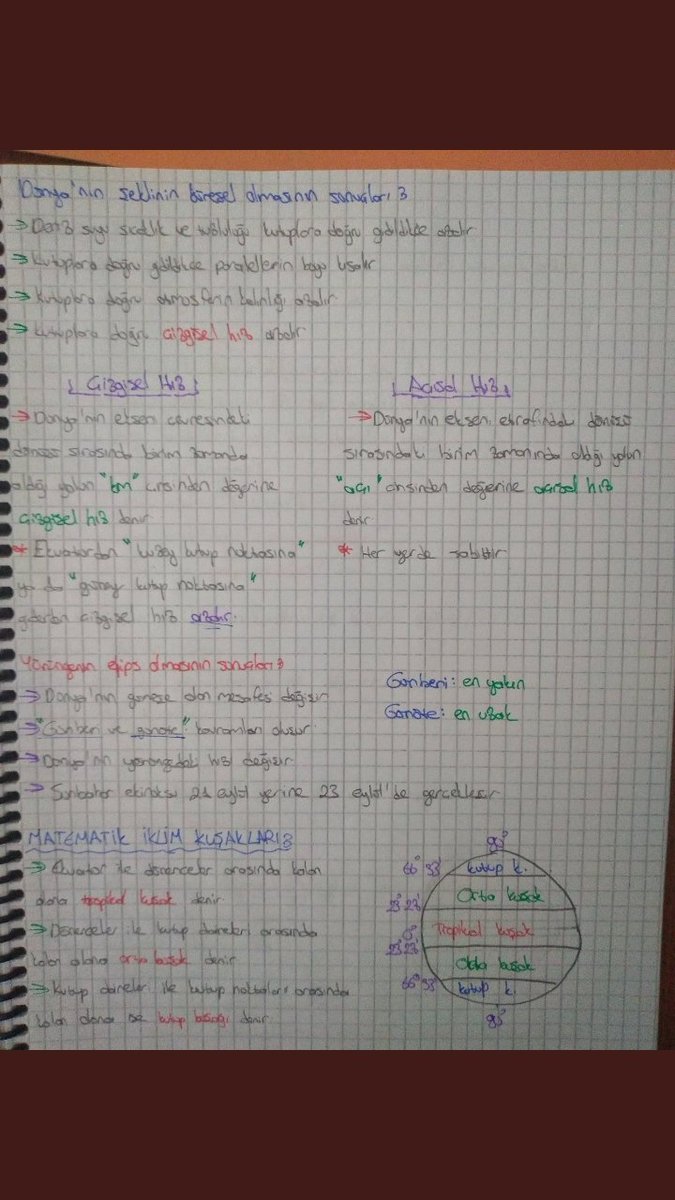 Dünya'nın şeklinin küresel olmasının sonuçları:
→ Deniz suyu sıcaklık ve tuzluluğu kutuplara doğru gidildikçe azalır.
→ Kutuplara doğru gidildikçe paralellerin boyu kısalır
→ Kutuplara doğru atmosferin kalınlığı azalır.
→ Kutuplara doğru çizgisel hız azalır.
Çizgisel Hız
→ Dünya'nın eksen çevresindeki
dönüşü sırasında birim zamanda
aldığı yolun "km" cinsinden değerine
çizgisel hız denir
* Ekvatordan "kuzey kutup noktasına"
ya da "güney kutup noktasına"
giderken çizgisel hız azalır.
Açısal Hız
→ Dünya'nın ekseni etrafındaki dönüşü
sırasındaki birim zamanında aldığı yolun
"açı" cinsinden değerine açısal hız
denir.
* Her yerde sabittir
Yörüngenin elips olmasının sonuçları:
→ Dünya'nın güneşe olan mesafesi değişir
→ "Günberi ve günöte" kavramları oluşur.
→ Dünya'nın yörüngedeki hızı değişir.
→ Sonbahar ekinoksu 21 eylül yerine 23 eylül'de gerçekleşir
Günberi: en yakın
Günöte: en uzak
MATEMATİK İKLİM KUŞAKLARI:
→ Ekvator ile dönenceler arasında kalan
alana tropikal kuşak denir
→ Dönenceler ile kutup daireleri arasında
kalan alana orta kuşak denir
→ Kutup daireleri ile kutup noktaları arasında
kalan alana ise kutup kuşağı denir.
90°
66° 33' kutup k.
23° 27' Orta kuşak
0° Tropikal kuşak
23° 27' Orta kuşak
66° 33' kutup k.
90°